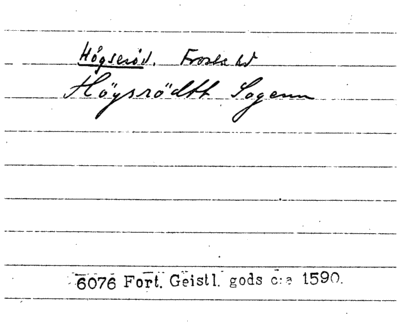 Högseröd. Frosta hd
Högsrödth Sogenn
6076 Fort. Geistl. gods c:a 1590.